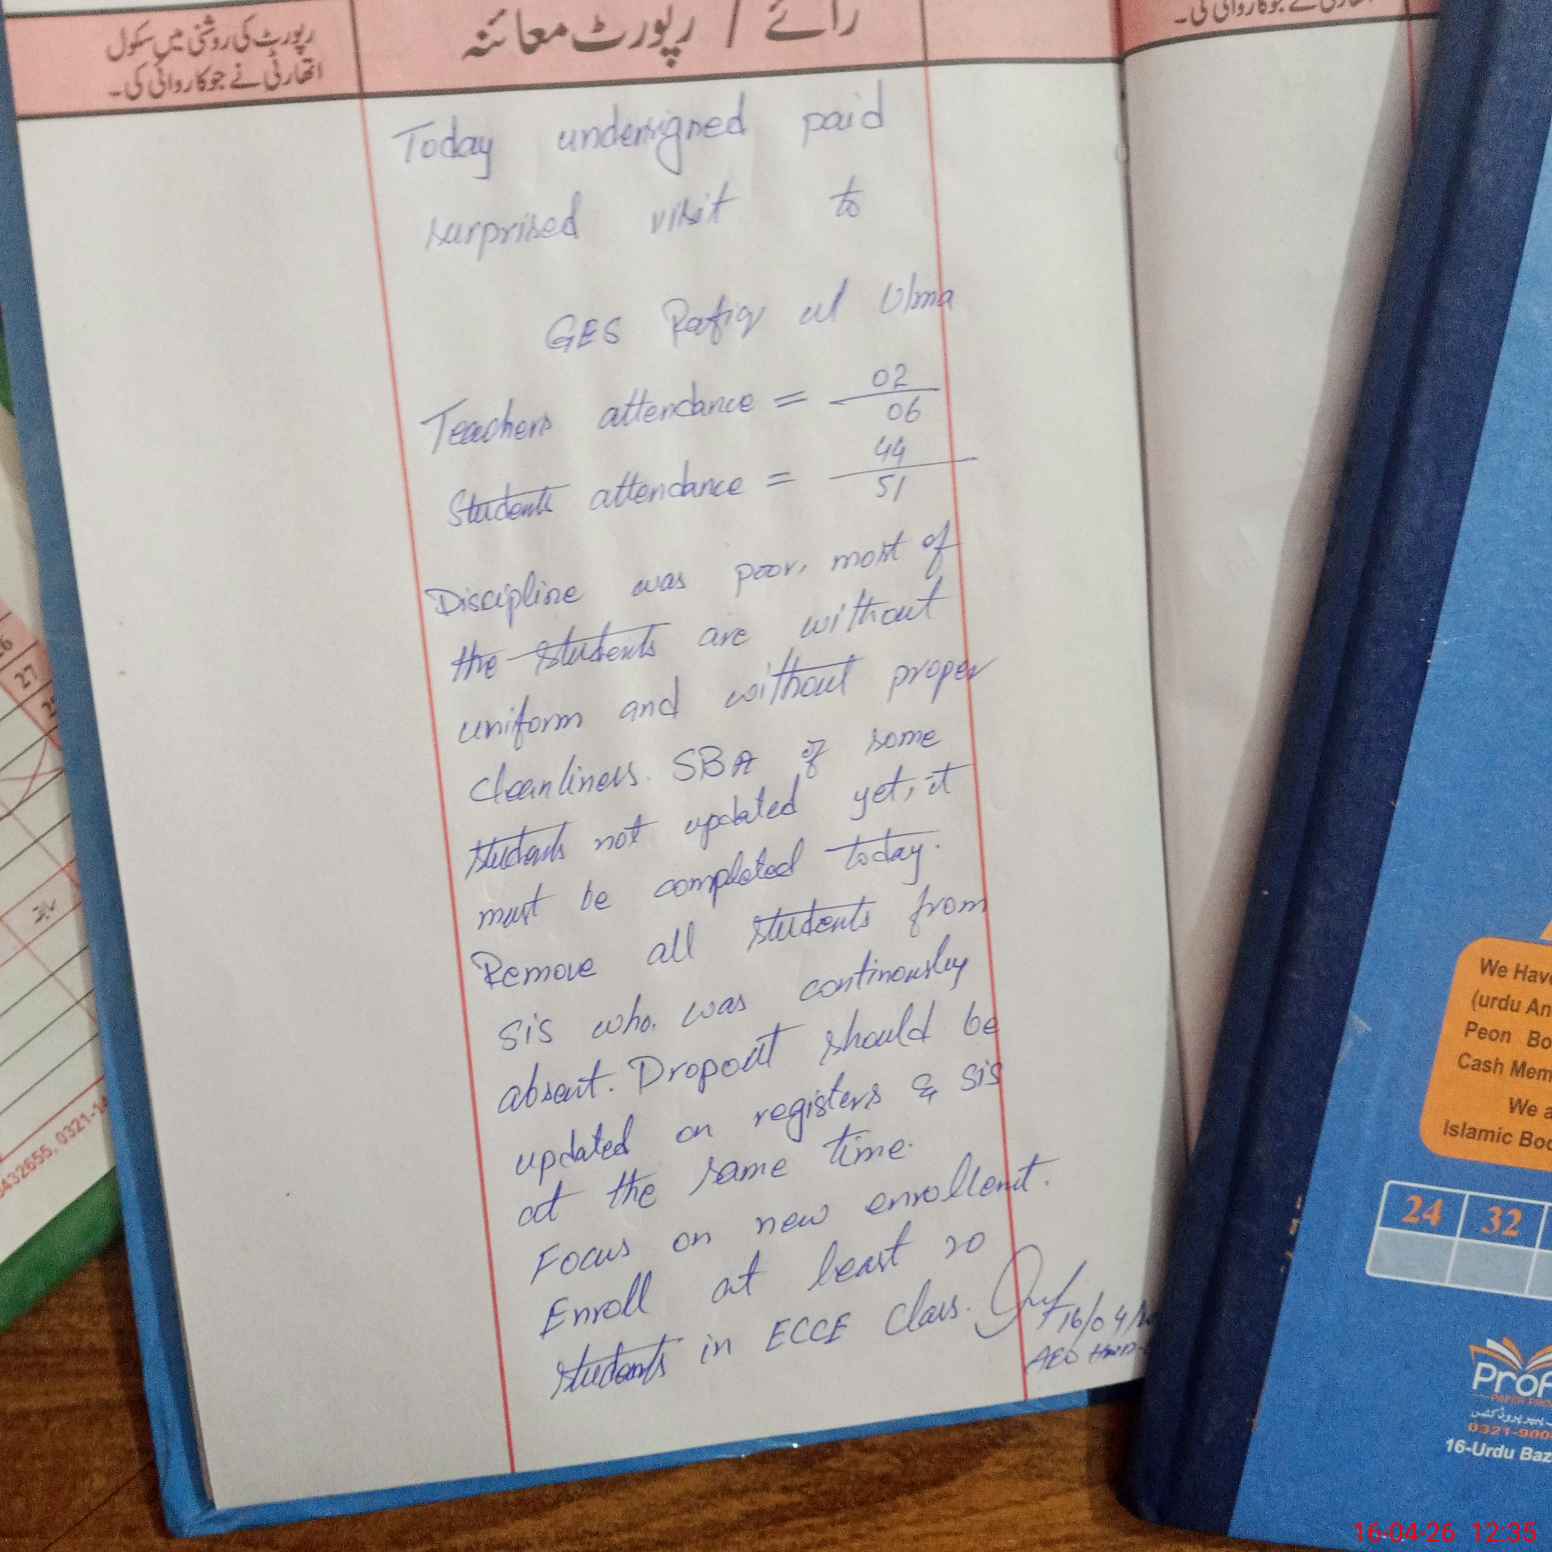 رپورٹ کی روشنی میں سکول
اتھارٹی نے جو کاروائی کی۔
رائے / رپورٹ معائنہ
Today undersigned paid
surprised visit to
GES Rafiq ul Ulma
Teachers attendance = 02
06
Students attendance = 44
51
Discipline was poor, most of
the students are without
uniform and without proper
cleanliness. SBA of some
students not updated yet, it
must be completed today.
Remove all students from
SiS who was continously
absent. Dropout should be
updated on registers & SiS
at the same time.
Focus on new enrollemt.
Enroll at least 20
students in ECCE Class.
16/04/
AEO
27
432655, 0321-1
We Have
(urdu An
Peon Bo
Cash Mem
We a
Islamic Boo
24 32
Prof
0321-900
16-Urdu Baz
16-04-26 12:35